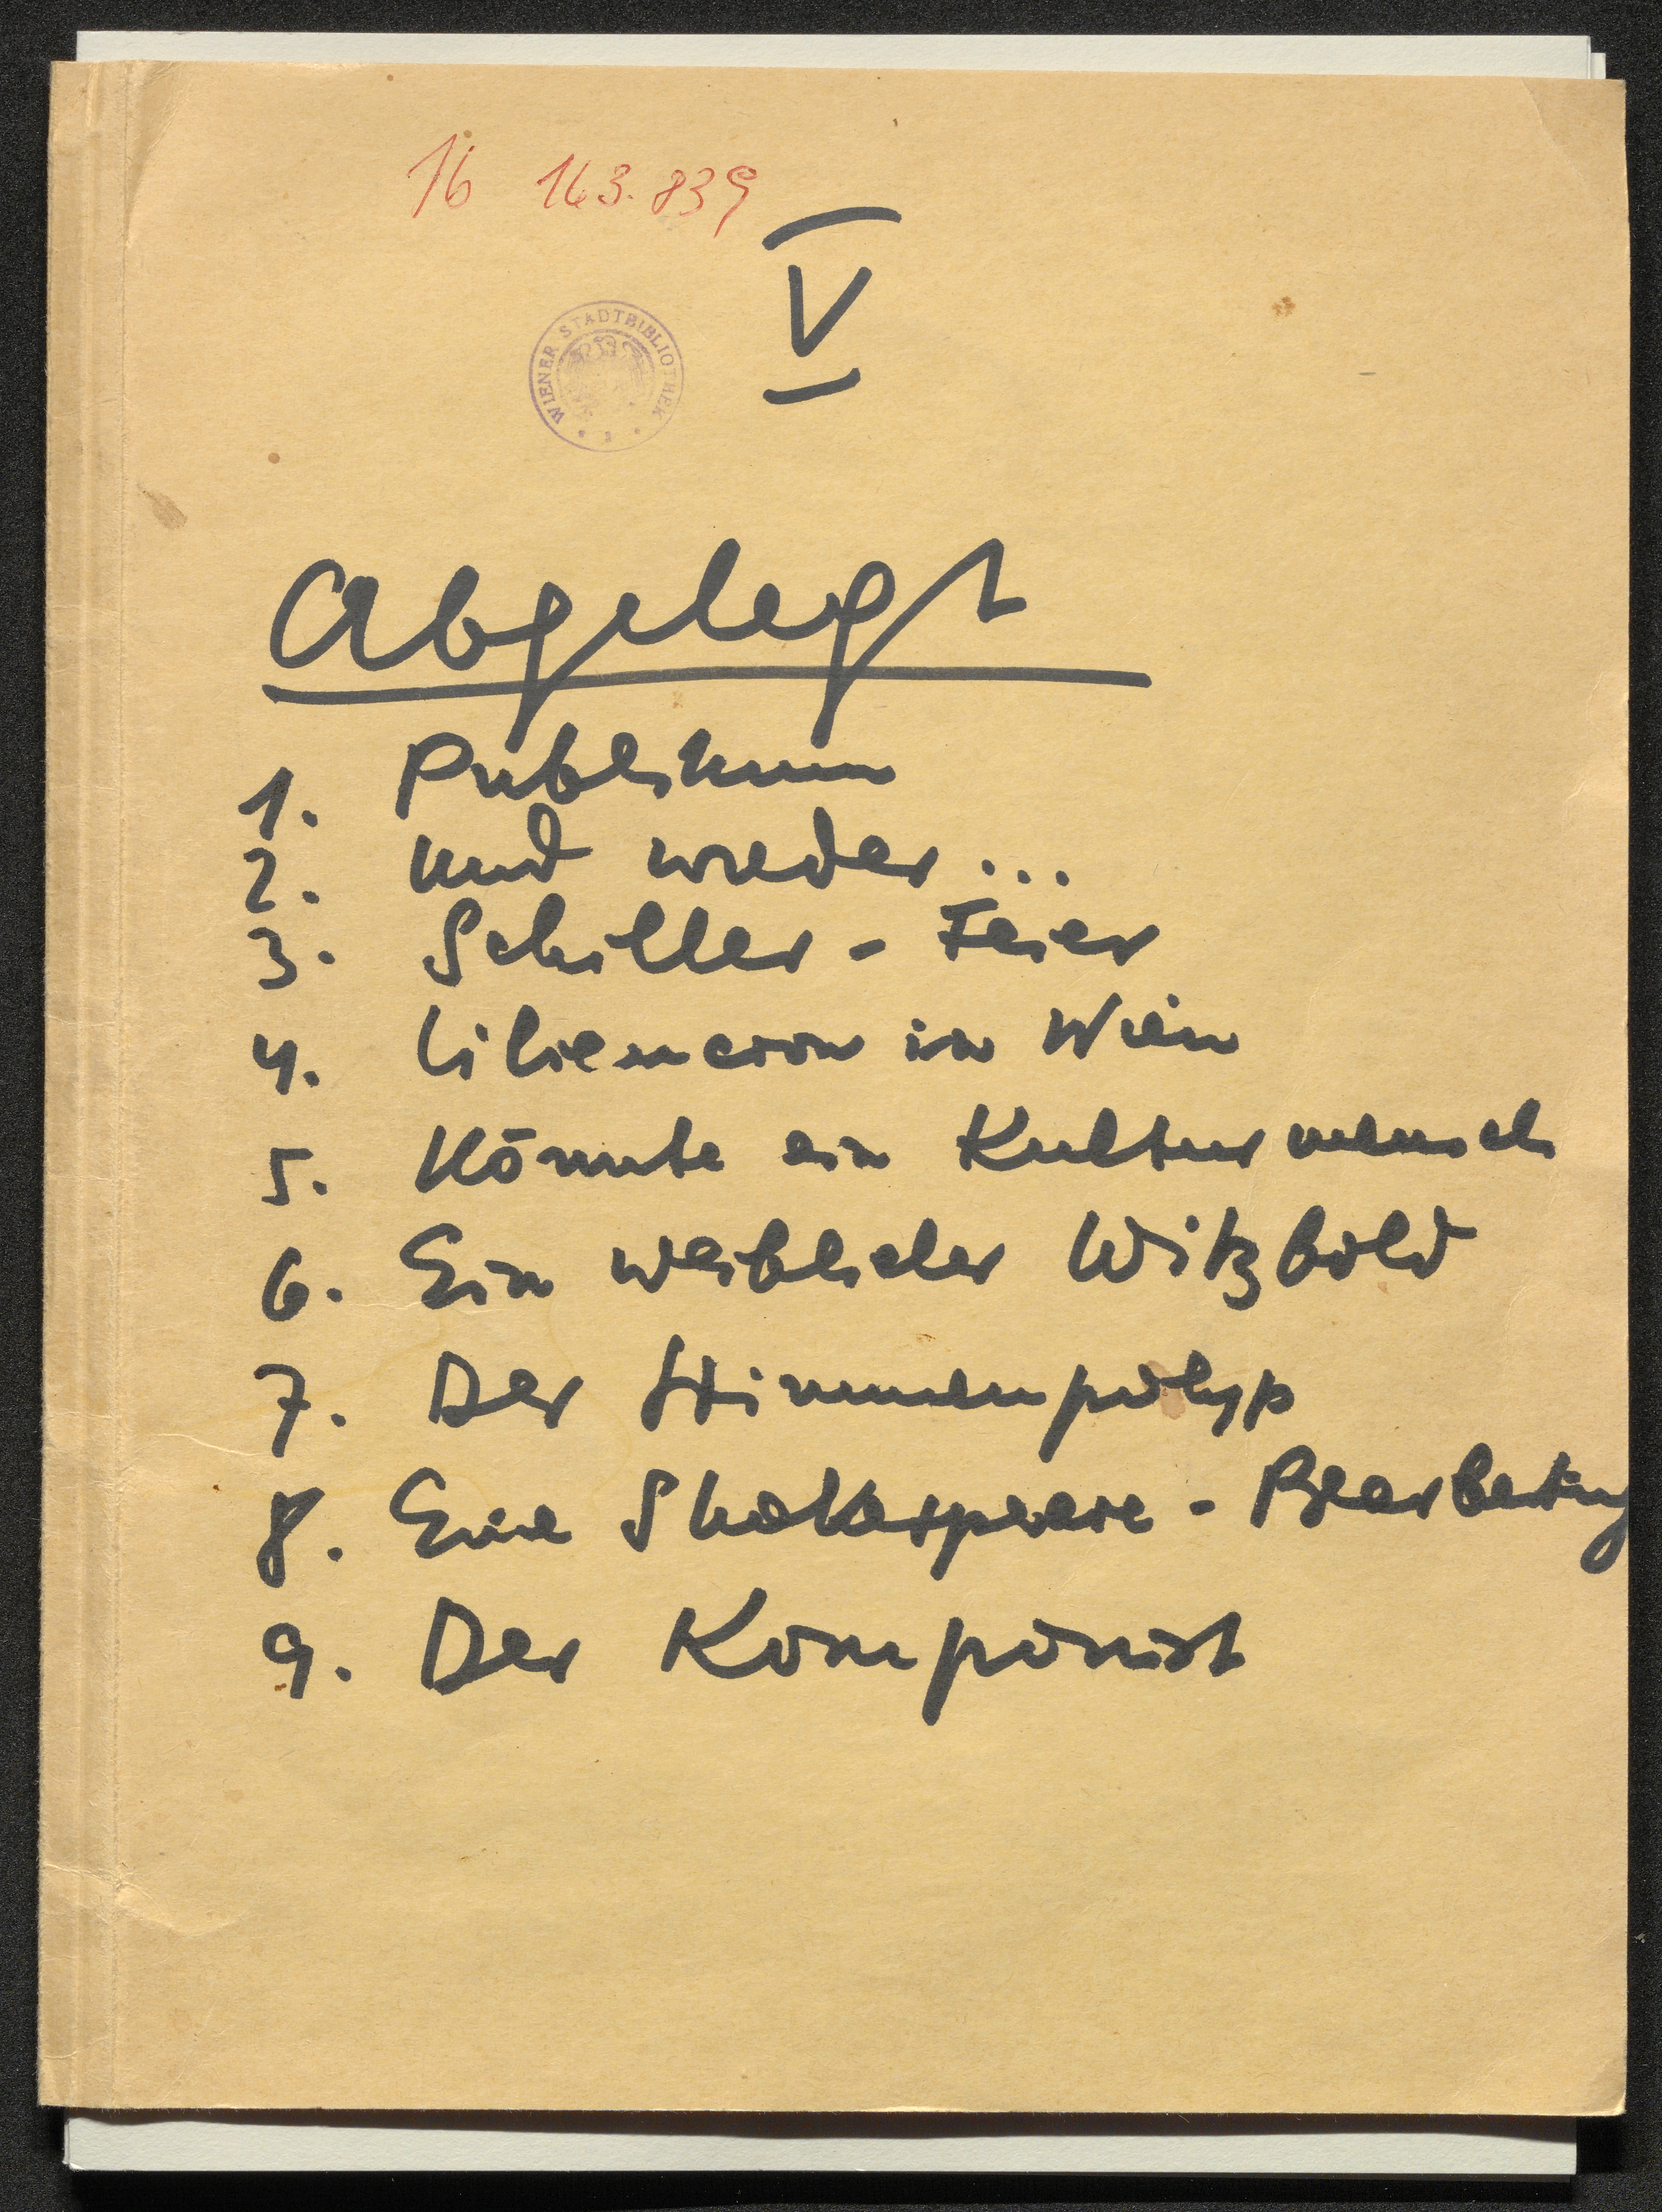 16 163.839
V
WIENER STADTBIBLIOTHEK
Abgelegt
1. Publikum
2. Und wieder...
3. Schiller - Feier
4. Liliencron in Wien
5. Könnte ein Kulturmensch
6. Ein weiblicher Witzbold
7. Der Stimmenpolyp
8. Eine Shakespeare - Bearbeitung
9. Der Komponist